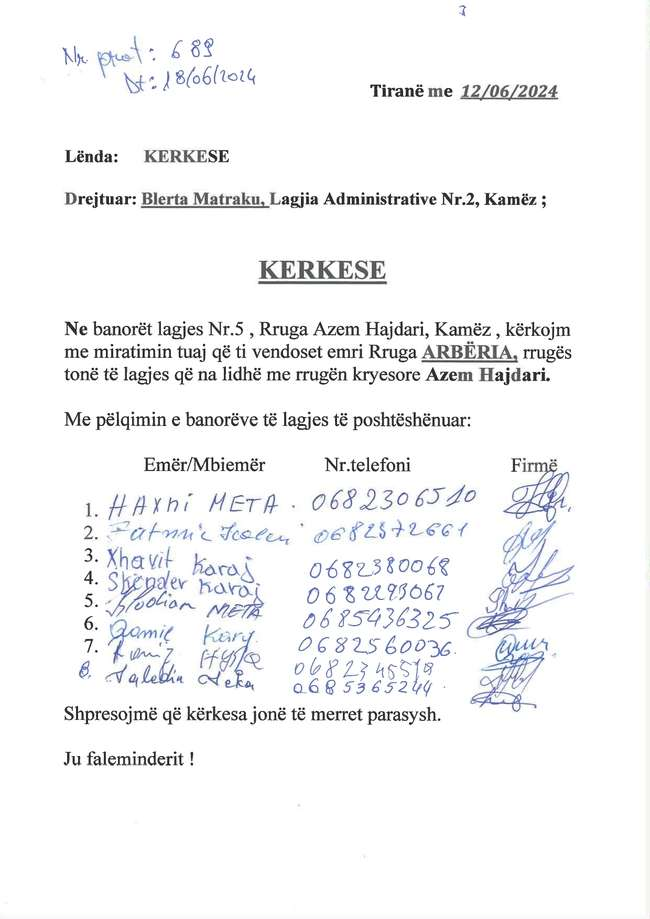 Nr prot: 689
Dt: 18/06/2024
Tiranë me 12/06/2024
Lënda: KERKESE
Drejtuar: Blerta Matraku, Lagjia Administrative Nr.2, Kamëz ;
KERKESE
Ne banorët lagjes Nr.5 , Rruga Azem Hajdari, Kamëz , kërkojm
me miratimin tuaj që ti vendoset emri Rruga ARBËRIA, rrugës
tonë të lagjes që na lidhë me rrugën kryesore Azem Hajdari.
Me pëlqimin e banorëve të lagjes të poshtëshënuar:
Emër/Mbiemër Nr.telefoni Firmë
1. HAXhi META . 0682306510
2. Fatmir 0682572661
3. Xhavit Karaj 0682380068
4. Skënder Karaj 0682293067
5. META 0685436325
6. Qamil 0682560036.
7. Hysa
8. 0685365244 .
Shpresojmë që kërkesa jonë të merret parasysh.
Ju faleminderit !